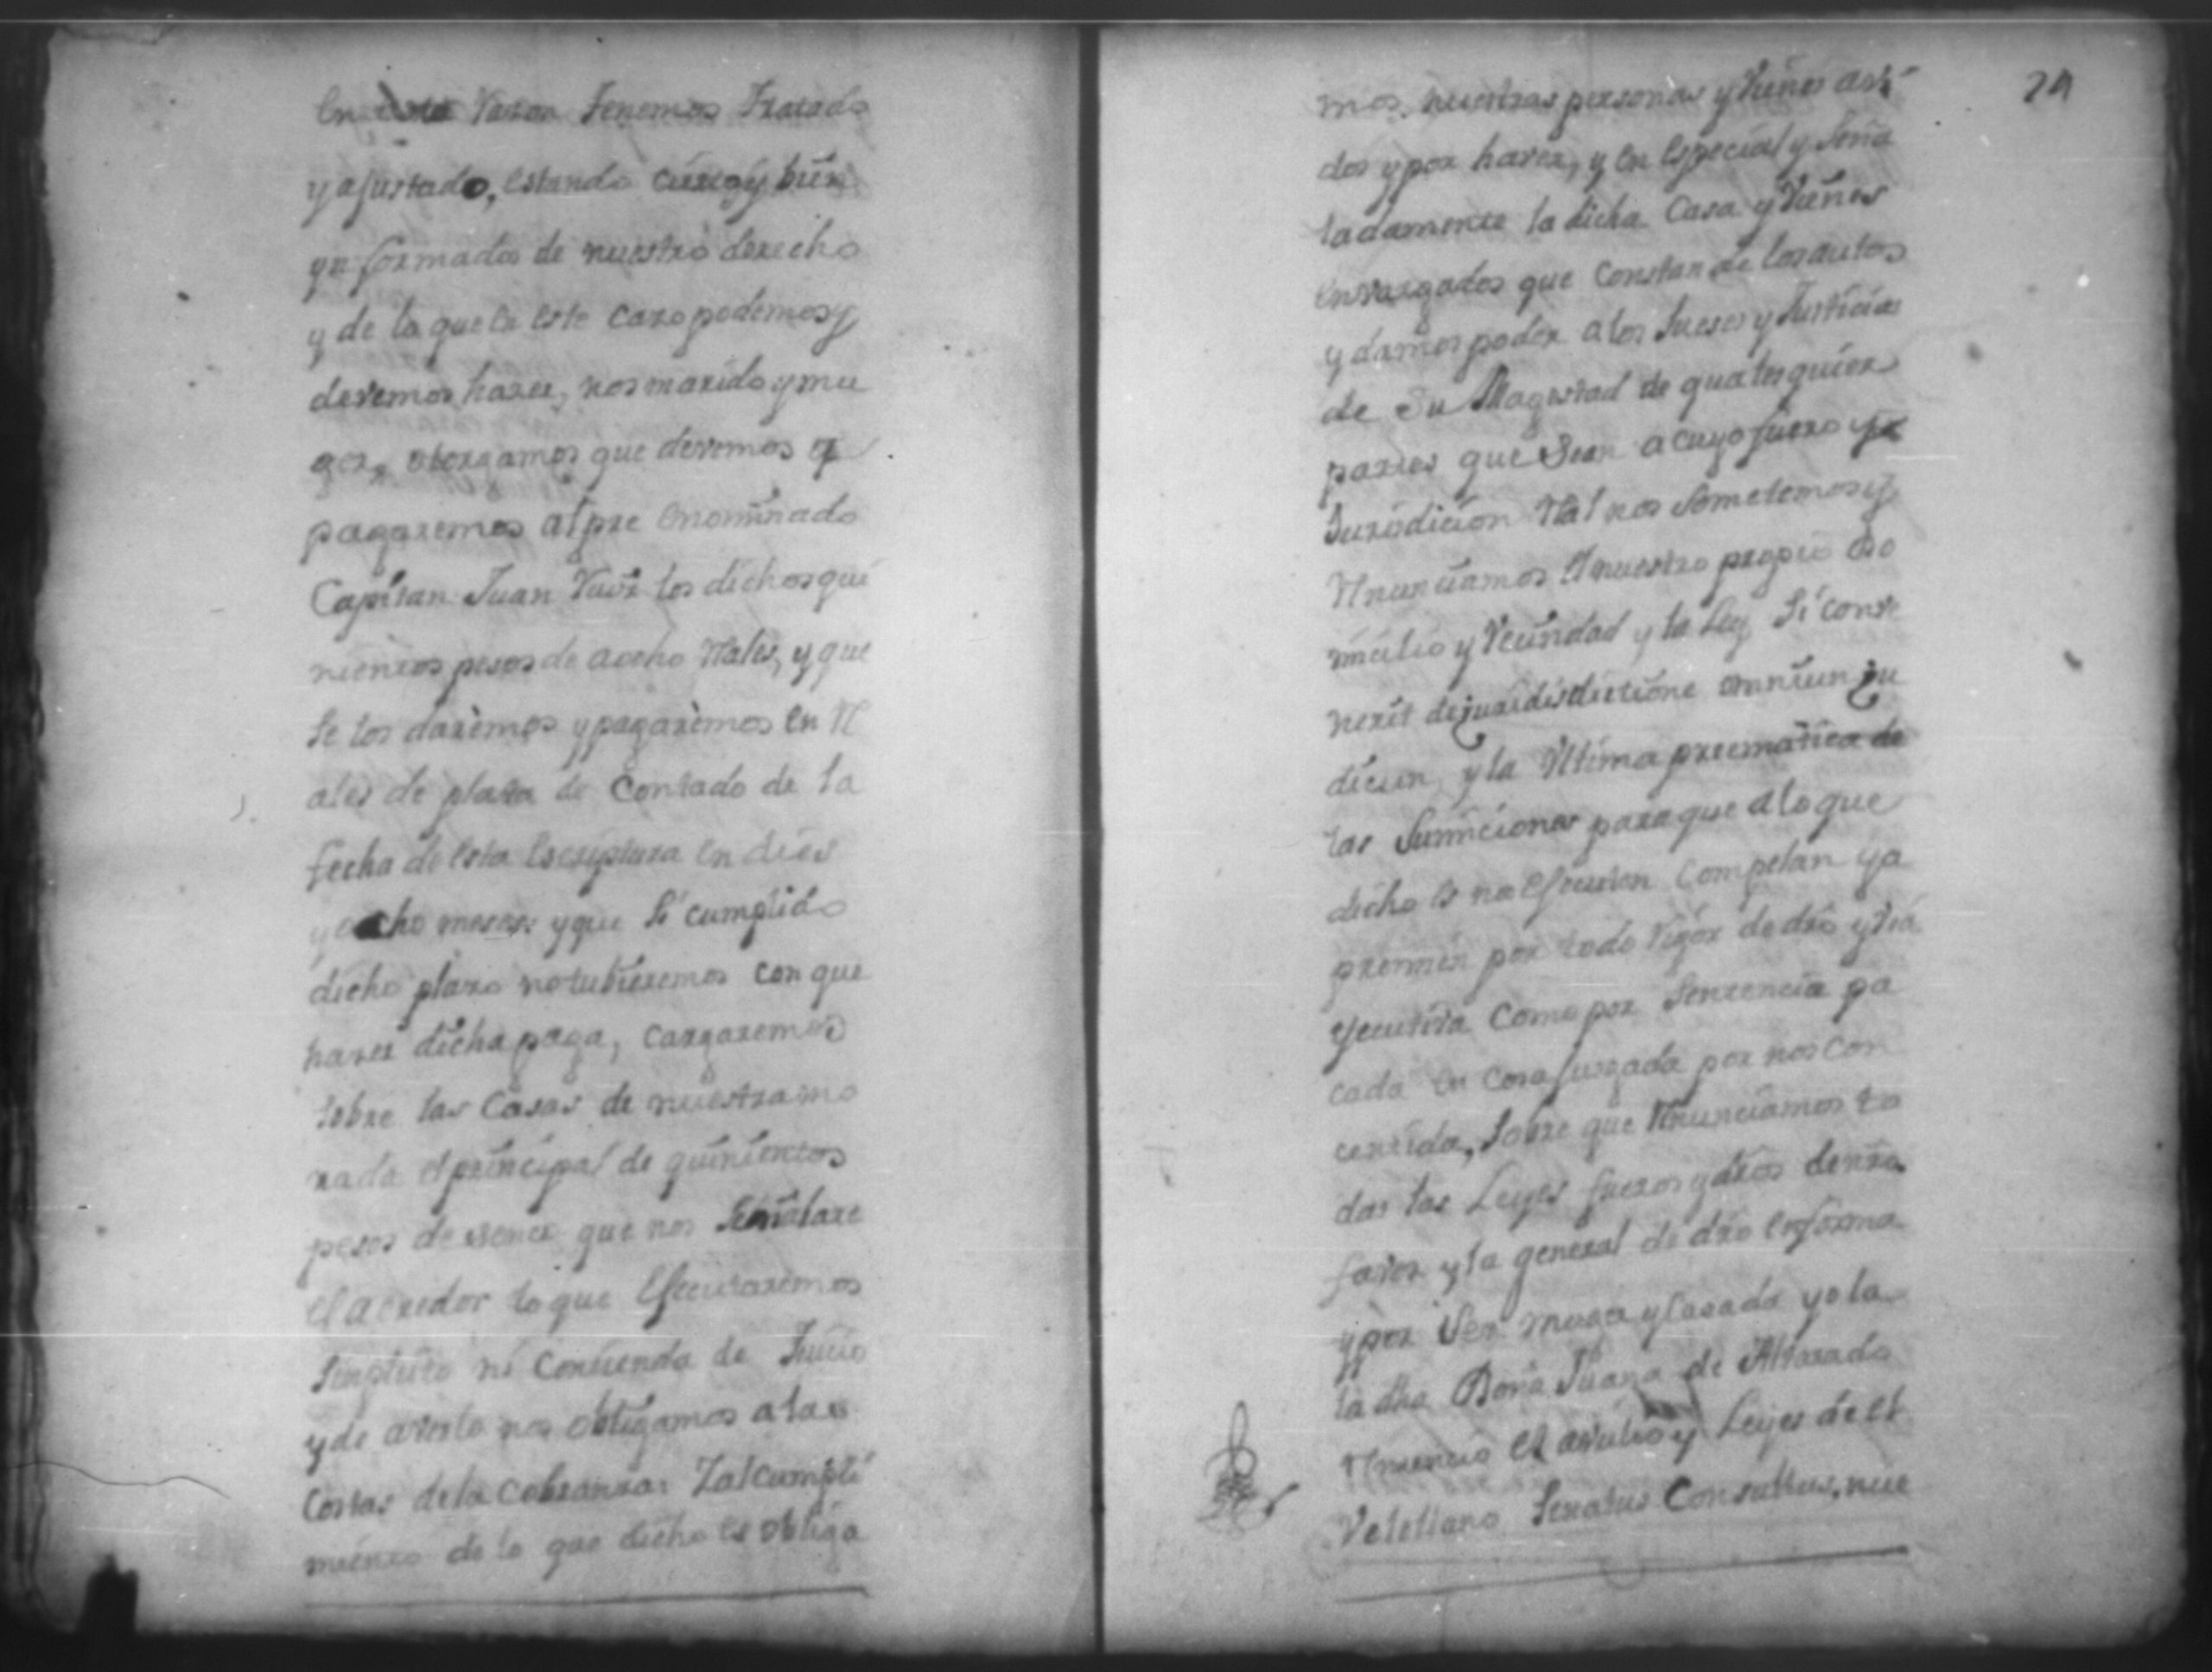 en esta razon Tenemos Tratado
y ajustado, estando ciertos y bien
ynformados de nuestro derecho
y de lo que en este caso podemos y
devemos hazer, nos marido y mu
ger, otorgamos que devemos y
pagaremos al pre enominado
Capitan Juan los dichos qui
nientos pesos de aocho Rales, y que
se los daremos y pagaremos en R
ales de plata de Contado de la
fecha de esta escriptura en dies
y ocho meses: y que si cumplido
dicho plazo no tubieremos con que
hazer dicha paga, cargaremos
sobre las Casas de nuestra mo
rada el principal de quinientos
pesos de senso que nos señalare
el acredor lo que efecutaremos
sin pleito ni Contienda de Juicio
y de averlo nos obligamos a las
Costas de la cobranza: Y al cumpli
miento de lo que dicho es obliga
24
mos nuestras personas y vienes avi
dos y por haver, y en especial y Seña
ladamente la dicha Casa y vienes
envargados que Constan de los autos
y damos poder a los Jueses y Justicias
de Su Magestad de qualesquier
partes que Sean a cuyo fuero y
Jurisdicion Ral nos Sometemos y
Rnunciamos el nuestro propio Do
micilio y Vecindad y la Ley Si conve
nerit de jurisdictione omniun ju
dicun, y la Ultima precmatica de
las Sumiciones para que a lo que
dicho es nos efecuten Compelan y a
premien por todo Rigor de dro y via
yecutiva Como por Sentencia pa
cada en cosa jusgada por nos con
centida, Sobre que Rnunciamos to
das las Leyes fueros y dros de nro
favor y la general de dro en forma
y por Ser muger y Casada yo la
la dha Doña Juana de Alvarado
Rnuncio el avxilio y Leyes de el
Veleliano Senatus Consultus, nue